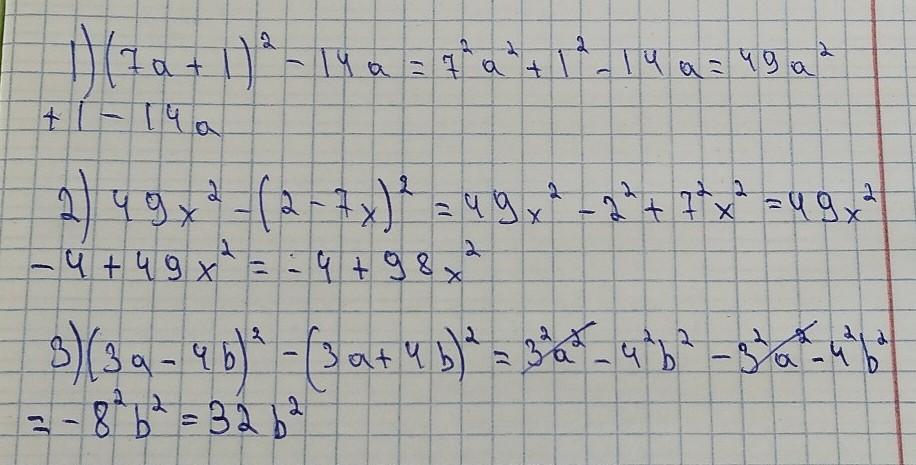 1) (7a + 1)² - 14a = 7²a² + 1² - 14a = 49a²
+ 1 - 14a
2) 49x² - (2 - 7x)² = 49x² - 2² + 7²x² = 49x²
- 4 + 49x² = -4 + 98x²
3) (3a - 4b)² - (3a + 4b)² = 3²a² - 4²b² - 3²a² - 4²b²
= -8²b² = 32b²